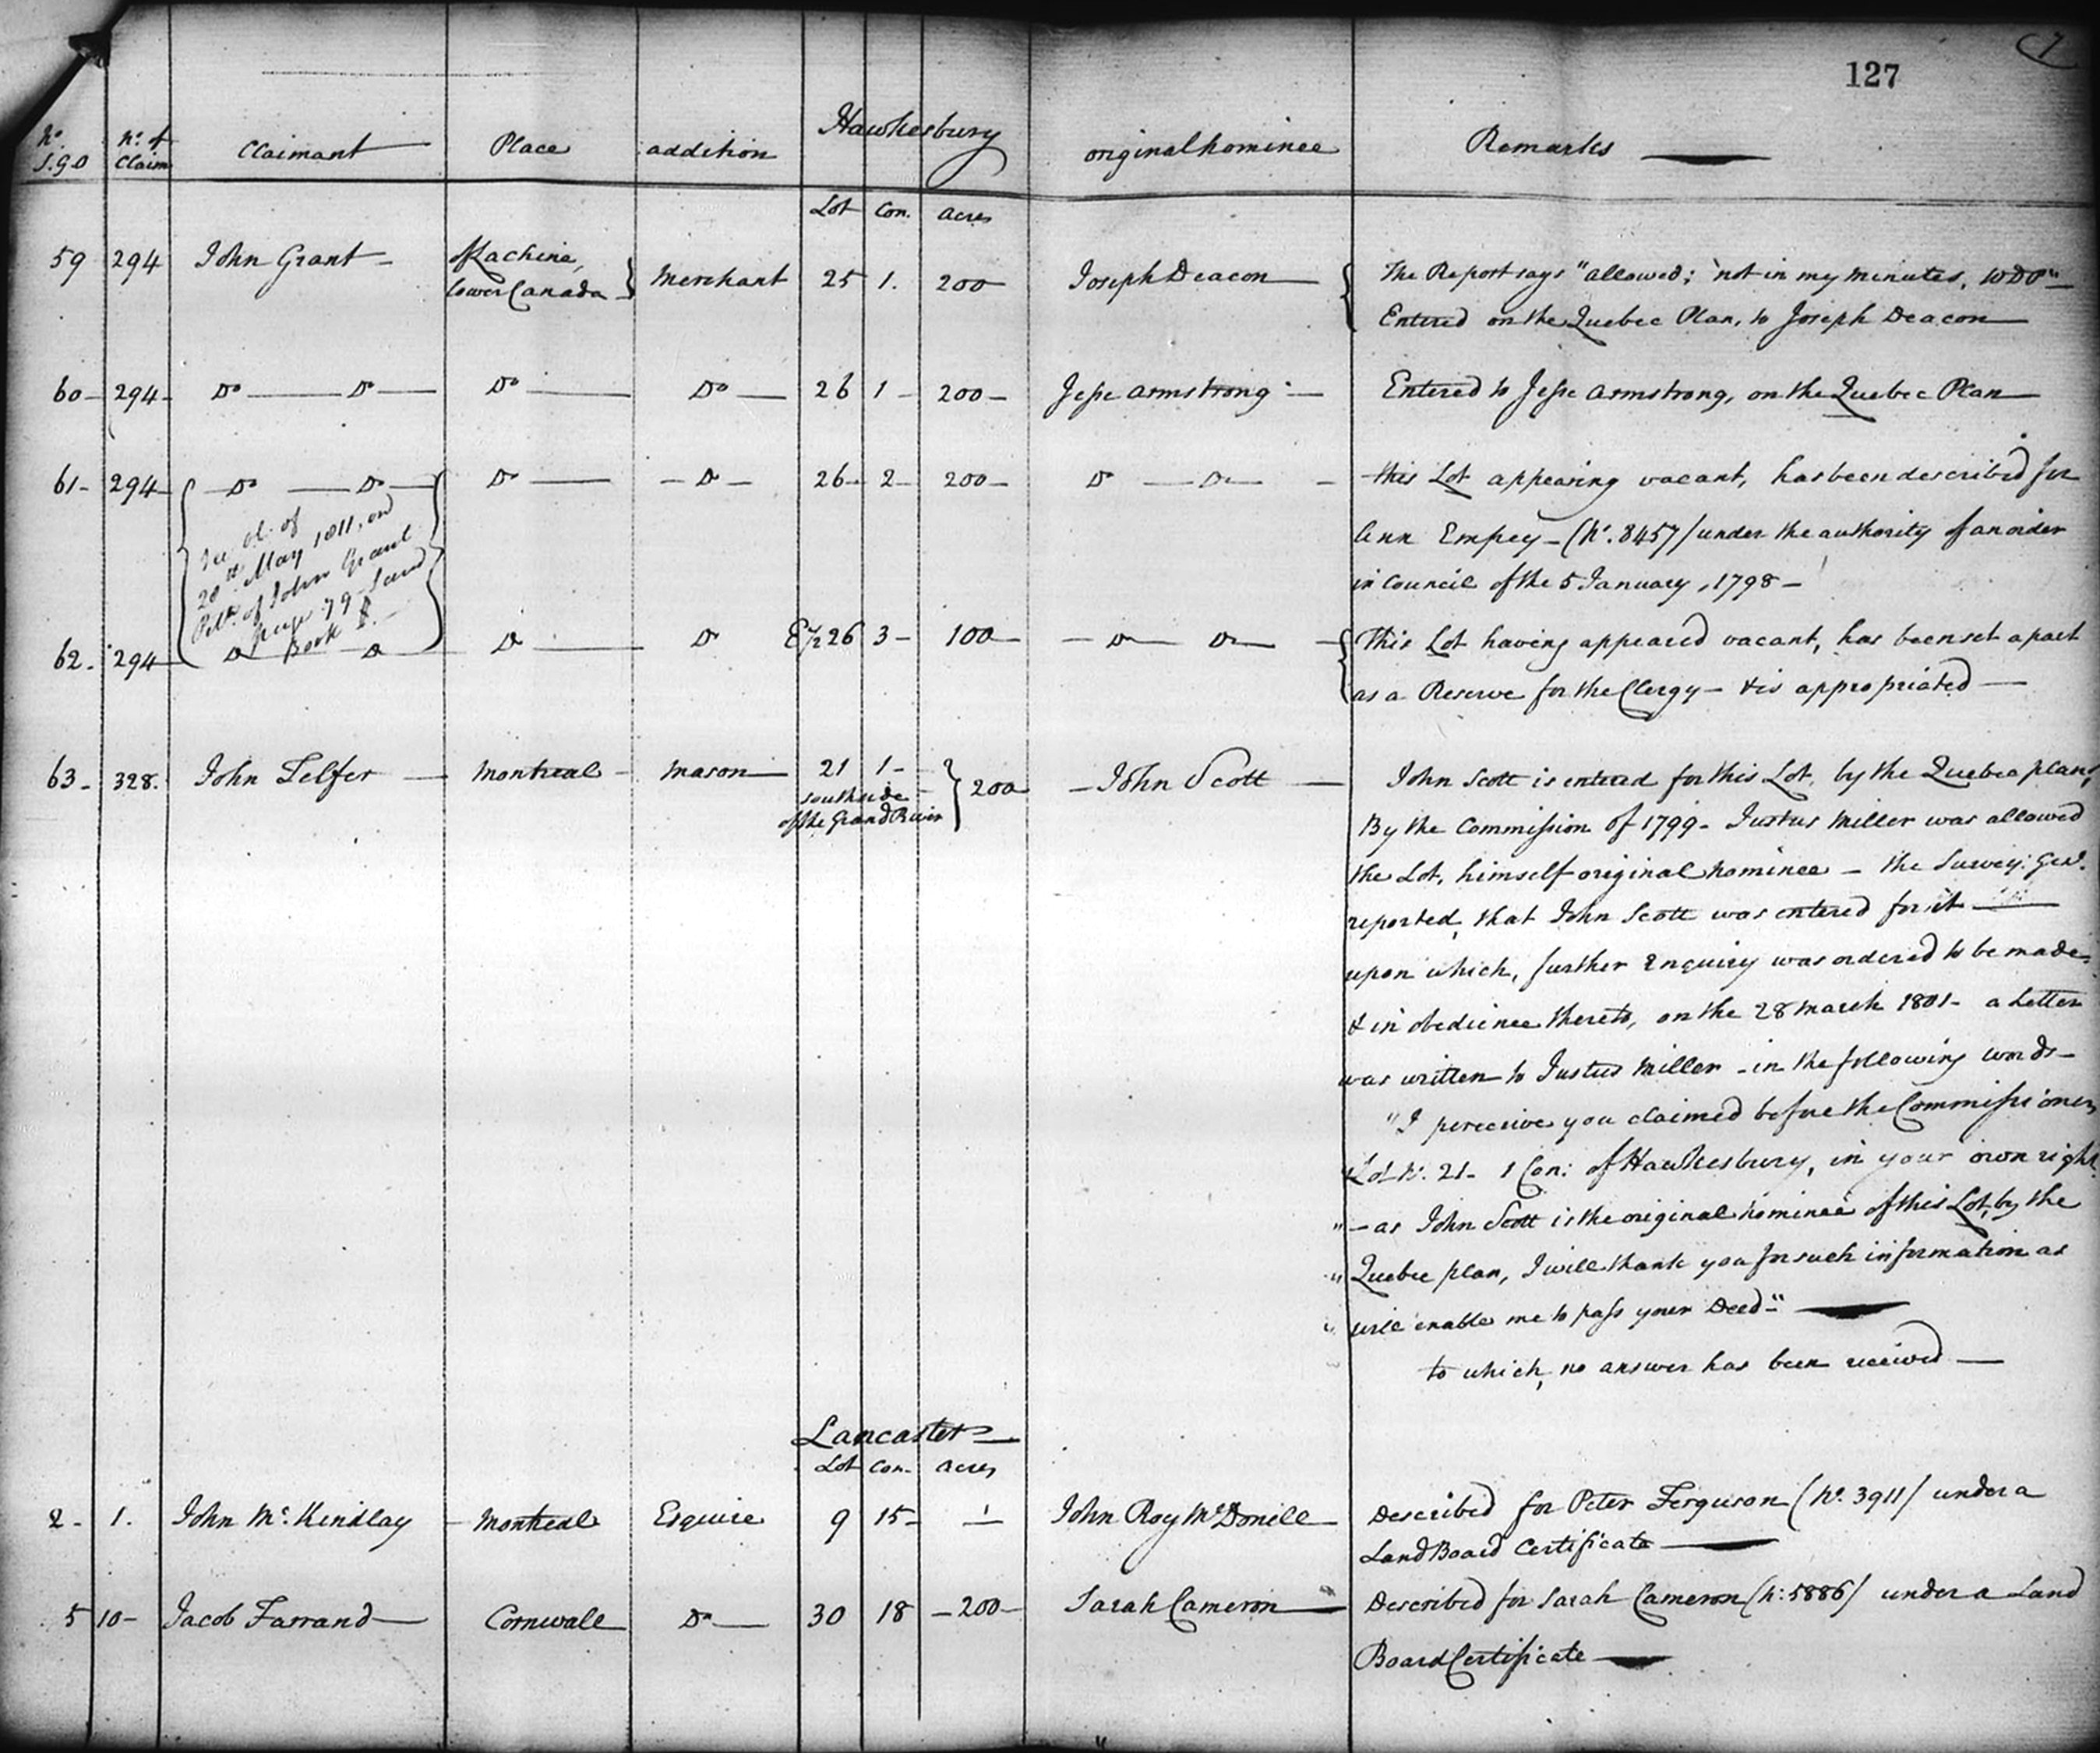 7
127
No. S.G.O No. of Claim Claimant Place addition Hawkesbury original Nominee Remarks
Lot Con. acres
59 294 John Grant of Lachine, lower Canada } Merchant 25 1. 200 Joseph Deacon { The Report says "allowed; "not in my minutes, WDP"
Entered on the Quebec Plan, to Joseph Deacon
60 294 Do Do Do Do 26 1 200 Jesse Armstrong Entered to Jesse Armstrong, on the Quebec Plan
61 294 Do Do Do Do 26 2 200 Do Do this Lot appearing vacant, has been described for
Ann Empey - (No. 8457) under the authority of an order
in Council of the 5 January, 1798 -
of
20th May 1811, on
Petn. of John Grant
Page 79 Land
Book
62 294 Do Do Do Do E½ 26 3 100 Do Do { This Lot having appeared vacant, has been set apart
as a Reserve for the Clergy - & is appropriated
63 328. John Telfer Montreal Mason 21 1 } 200 John Scott John Scott is entered for this Lot, by the Quebec plan,
south side
of the Grand River
By the Commission of 1799 - Justus Miller was allowed
the Lot, himself original nominee - the Survey: Genl.
reported, that John Scott was entered for it
upon which, further Enquiry was ordered to be made
& in obedience thereto, on the 28 March 1801 - a Letter
was written to Justus Miller - in the following words -
"I perceive you claimed before the Commissioners
"Lot No. 21 - 1 Con: of Hawkesbury, in your own right
" - as John Scott is the original nominee of this Lot, by the
" Quebec plan, I will thank you for such information as
" will enable me to pass your Deed - "
to which, no answer has been received
Lancaster
Lot Con. acres
2 1. John McKindlay Montreal Esquire 9 15 John Roy McDonell Described for Peter Ferguson (No. 3911) under a
Land Board Certificate
5 10 Jacob Farrand Cornwall Do 30 18 200 Sarah Cameron Described for Sarah Cameron (No: 5886) under a Land
Board Certificate